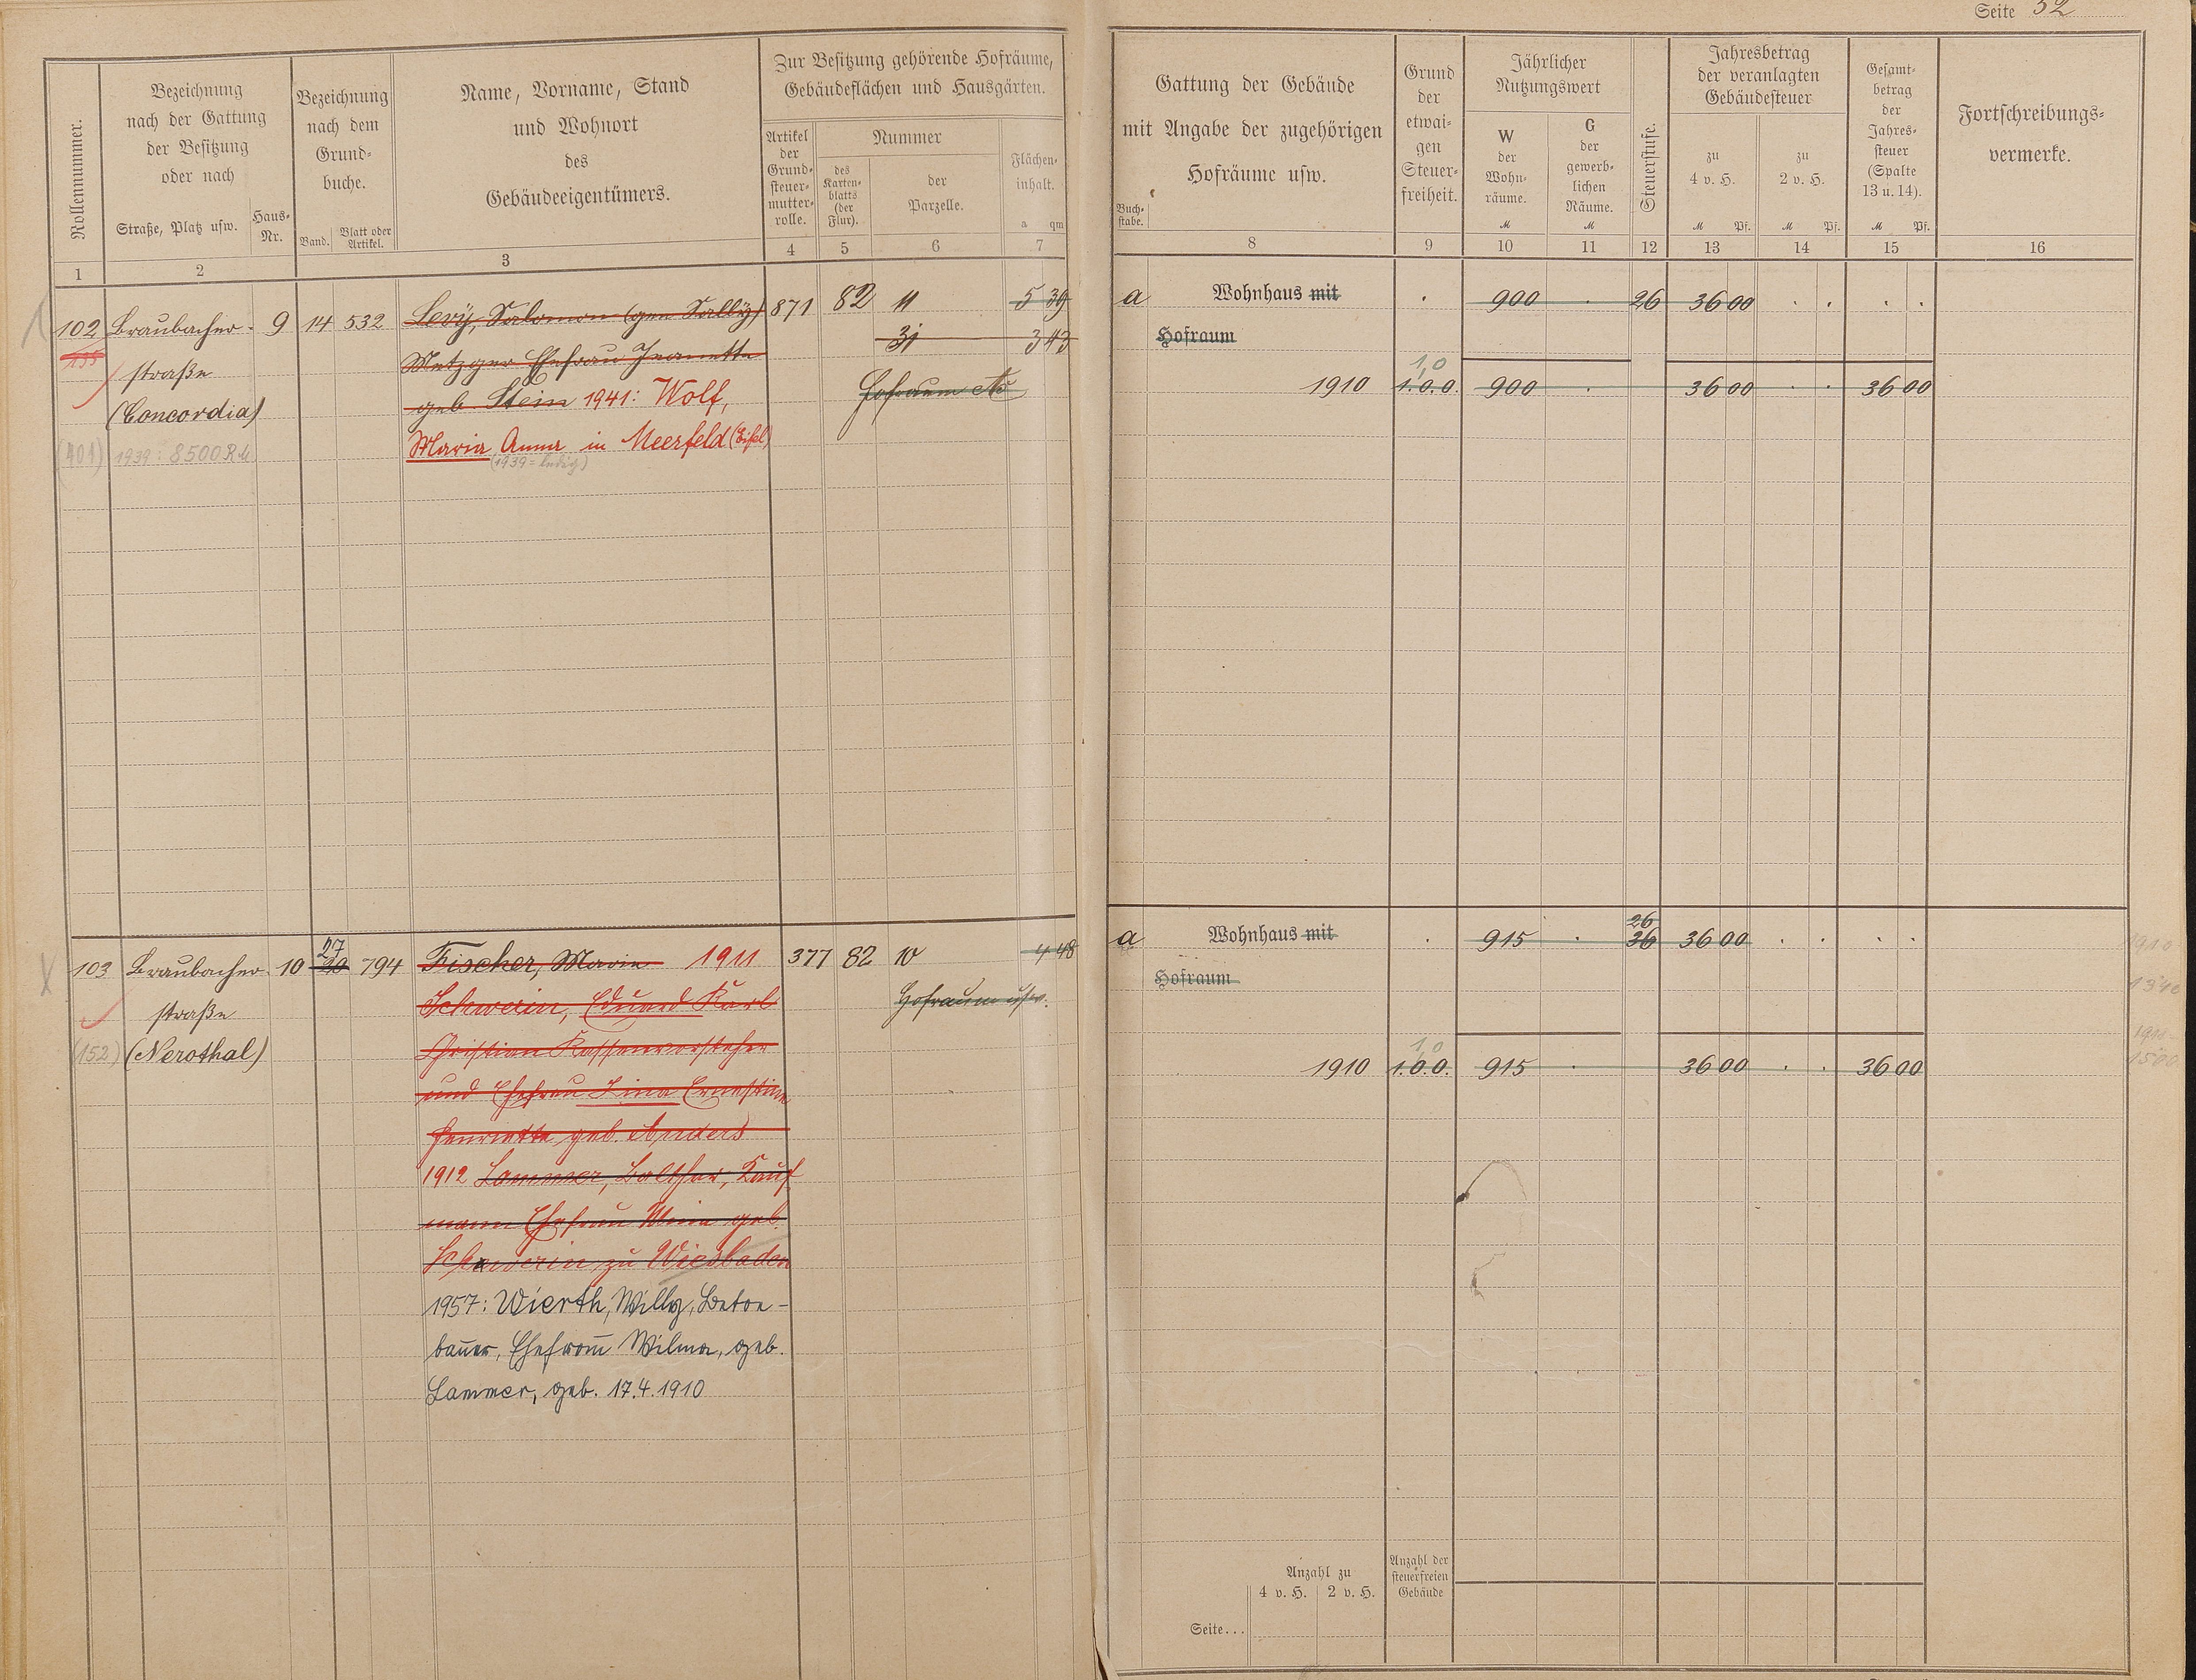 Seite 52
Rollennummer.
Bezeichnung
nach der Gattung
der Besitzung
oder nach
Straße, Platz usw.
Haus-
Nr.
Bezeichnung
nach dem
Grund-
buche.
Band.
Blatt oder
Artikel.
Name, Vorname, Stand
und Wohnort
des
Gebäudeeigentümers.
Zur Besitzung gehörende Hofräume,
Gebäudeflächen und Hausgärten.
Artikel
der
Grund-
steuer-
mutter-
rolle.
Nummer
des
Karten-
blatts
(der
Flur).
der
Parzelle.
Flächen-
inhalt.
a qm
Gattung der Gebäude
mit Angabe der zugehörigen
Hofräume usw.
Buch-
stabe.
Grund
der
etwai-
gen
Steuer-
freiheit.
Jährlicher
Nutzungswert
W
der
Wohn-
räume.
M
G
der
gewerb-
lichen
Räume.
M
Steuerstufe.
Jahresbetrag
der veranlagten
Gebäudesteuer
zu
4 v. H.
M Pf.
zu
2 v. H.
M Pf.
Gesamt-
betrag
der
Jahres-
steuer
(Spalte
13 u. 14).
M Pf.
Fortschreibungs-
vermerke.
1 2 3 4 5 6 7 8 9 10 11 12 13 14 15 16
102 Braubacher- 9 14 532 Levÿ, Salomon (gen Sally) 871 82 11 5 39
a Wohnhaus mit . 900 . 26 36 00 . . . .
135
straße
Metzger Ehefrau Jeanette
31 3 43
Hofraum
(Concordia)
geb. Stein 1941: Wolf,
Hofraum etc
1910 1,0 1.0.0. 900 . 36 00 . . 36 00
(401) 1939: 8500 RM
Maria Anna in Meerfeld (Eifel)
(1939 = ledig)
103 Braubacher- 10 27 20 794 Fischer, Maria 1911 377 82 10 4 48
a Wohnhaus mit . 915 . 26 36 36 00 . . . .
straße
Schwerin, Eduard Karl
Hofraum usw.
Hofraum
(152) (Nerothal)
Christian Kassenvorsteher
1910 1,0 1.0.0. 915 . 36 00 . . 36 00
und Ehefrau Lina Ernestine
Henriette geb. Anders
1912 Lammer, Balthar, Kauf
mann Ehefrau Mina geb.
Schwerin, zu Wiesbaden
1957: Wierth, Willy, Beton-
bauer, Ehefrau Wilma, geb.
Lammer, geb. 17.4.1910
1910
1340
1500
Anzahl zu
4 v. H. 2 v. H.
Anzahl der
steuerfreien
Gebäude
Seite...